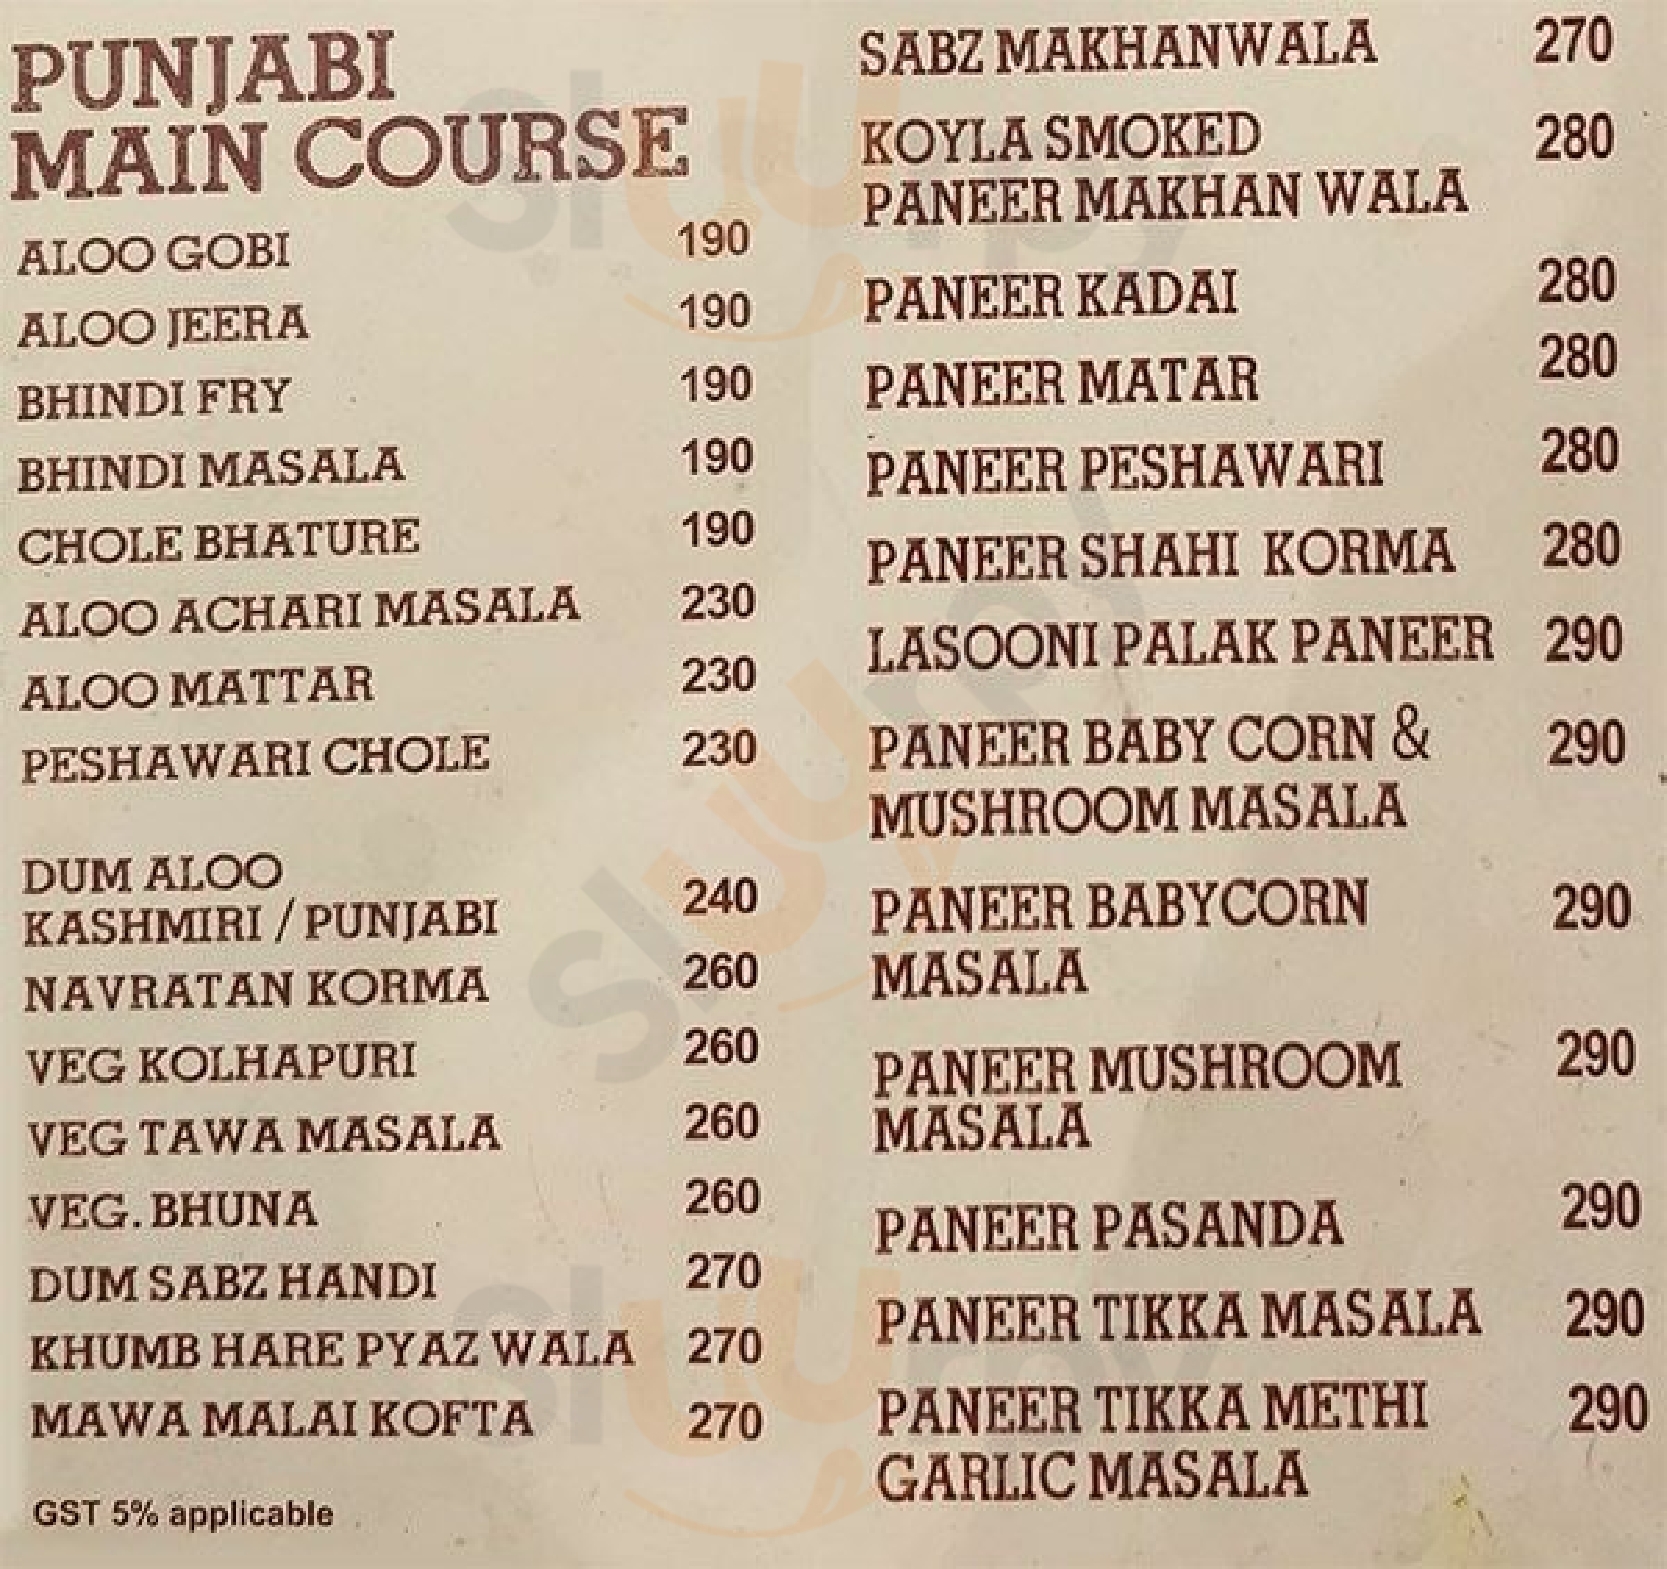 PUNJABI
MAIN COURSE
ALOO GOBI 190
ALOO JEERA 190
BHINDI FRY 190
BHINDI MASALA 190
CHOLE BHATURE 190
ALOO ACHARI MASALA 230
ALOO MATTAR 230
PESHAWARI CHOLE 230
DUM ALOO
KASHMIRI / PUNJABI 240
NAVRATAN KORMA 260
VEG KOLHAPURI 260
VEG TAWA MASALA 260
VEG. BHUNA 260
DUM SABZ HANDI 270
KHUMB HARE PYAZ WALA 270
MAWA MALAI KOFTA 270
GST 5% applicable
SABZ MAKHANWALA 270
KOYLA SMOKED 280
PANEER MAKHAN WALA
PANEER KADAI 280
PANEER MATAR 280
PANEER PESHAWARI 280
PANEER SHAHI KORMA 280
LASOONI PALAK PANEER 290
PANEER BABY CORN & 290
MUSHROOM MASALA
PANEER BABYCORN 290
MASALA
PANEER MUSHROOM 290
MASALA
PANEER PASANDA 290
PANEER TIKKA MASALA 290
PANEER TIKKA METHI 290
GARLIC MASALA
sluurpy
sluurpy
sluurpy